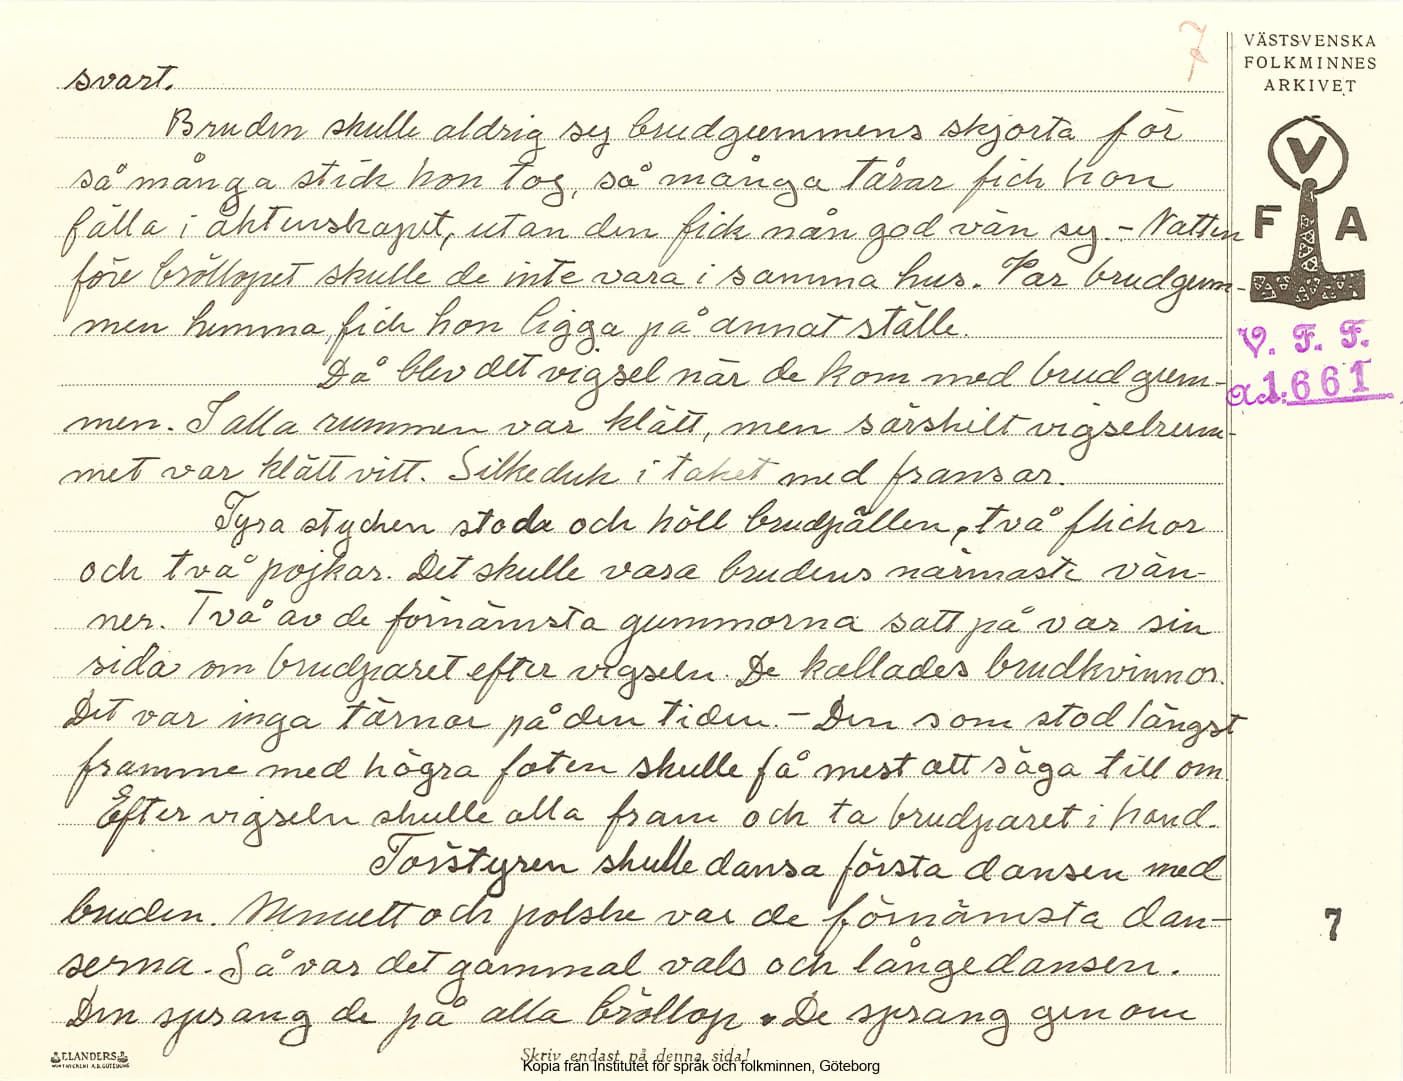 7
VÄSTSVENSKA
FOLKMINNES
ARKIVET
V
F A
V. F. F.
Acc: 1661
svart.
Bruden skulle aldrig sy brudgummens skjorta för
så många stick hon tog, så många tårar fick hon
fälla i äktenskapet, utan den fick nån god vän sy. - Natten
före bröllopet skulle de inte vara i samma hus. Var brudgum-
men hemma, fick hon ligga på annat ställe.
Då blev det vigsel när de kom med brudgum-
men. I alla rummen var klätt, men särskilt vigselrum-
met var klätt vitt. Silkeduk i taket med fransar.
Fyra stycken stode och höll brudpällen, två flickor
och två pojkar. Det skulle vara brudens närmaste vän-
ner. Två av de förnämsta gummorna satt på var sin
sida om brudparet efter vigseln. De kallades brudkvinnor.
Det var inga tärnor på den tiden. - Den som stod längst
framme med högra foten skulle få mest att säga till om
Efter vigseln skulle alla fram och ta brudparet i hand.
Torstyren skulle dansa första dansen med
bruden. Menuett och polska var de förnämsta dan-
serna. Så var det gammal vals och långedansen.
Den sprang de på alla bröllop. De sprang genom
7
F. LANDERS
Skriv endast på denna sida!
Kopia från Institutet för språk och folkminnen, Göteborg